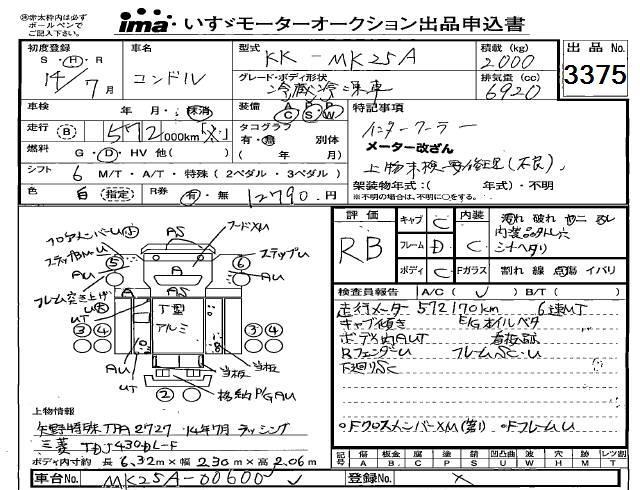 ※太枠内は必ず
ボールペンで
ご記入下さい。
ima いすゞモーターオークション出品申込書
初度登録 車名 型式 KK-MK25A 積載 (kg) 2000 出品No
S・H・R 14/7月 コンドル グレード・ボディ形状 冷蔵冷凍車 排気量 (cc) 6920 3375
車検 年 月・抹消 装備 A P P C S W 特記事項
走行 B 572,000km タコグラフ 有・無 別体 インタークーラー
燃料 G・D・HV 他( ) ( 年 月) メーター改ざん
シフト 6 M/T・A/T・特殊(2ペダル・3ペダル) 上物未検 要修理(不良)
色 白 指定 R券 有・無 12790円 架装物年式:( 年式)・不明
※不明の場合は、不明に○をする。
評価 キャブ C 内装 汚れ 破れ
RB フレーム D C 内装品欠品 穴
ボディ C Fガラス 割れ 線 点傷 イバリ
検査員報告 A/C( ✓ ) B/T( )
走行メーター 572170km 6速MT
キャブ傾き E/Gオイルベタ
ボディ内AUT 看板跡
RフェンダーU フレームSC・U
下廻りSC
○FクロスメンバーXM(第1) ○FフレームU
フロアメンバーU 小
AS
フードXU
ステップBM・U
ステップU
⑤
⑥
AU
AU
A
AS
フレーム突き上げU 大
UT
A
T型
アルミ
③④
④③
AU
UT
当板
当板
②
格納P/GAU
上物情報
矢野特殊 TFA2727 14年7月 ラッシング
三菱 TDJ430DL-F
ボディ内寸約 長 6.32m×幅 2.30m×高 2.06m
記号 傷 A 板金 B 腐 C 塗 P 錆 S 凹凸曲 U 波 W 穴 H 跡 M レンズ割 T
車台No. MK25A-00600 ✓ 登録No. ×